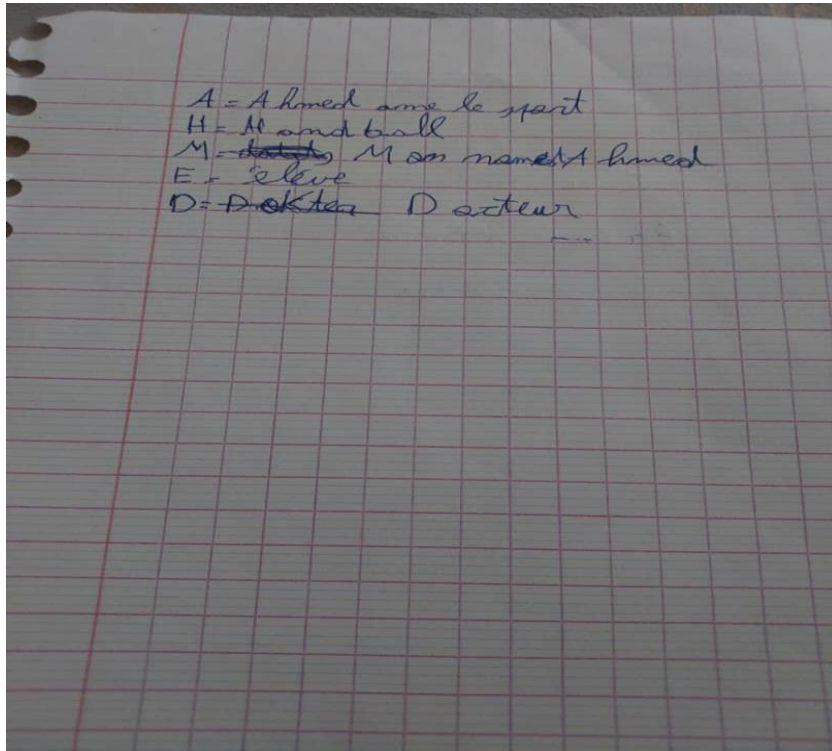 A = Ahmed ame le sport
H = Hand ball
M = Mon name Ahmed
E = élève
D = Dokter Docteur